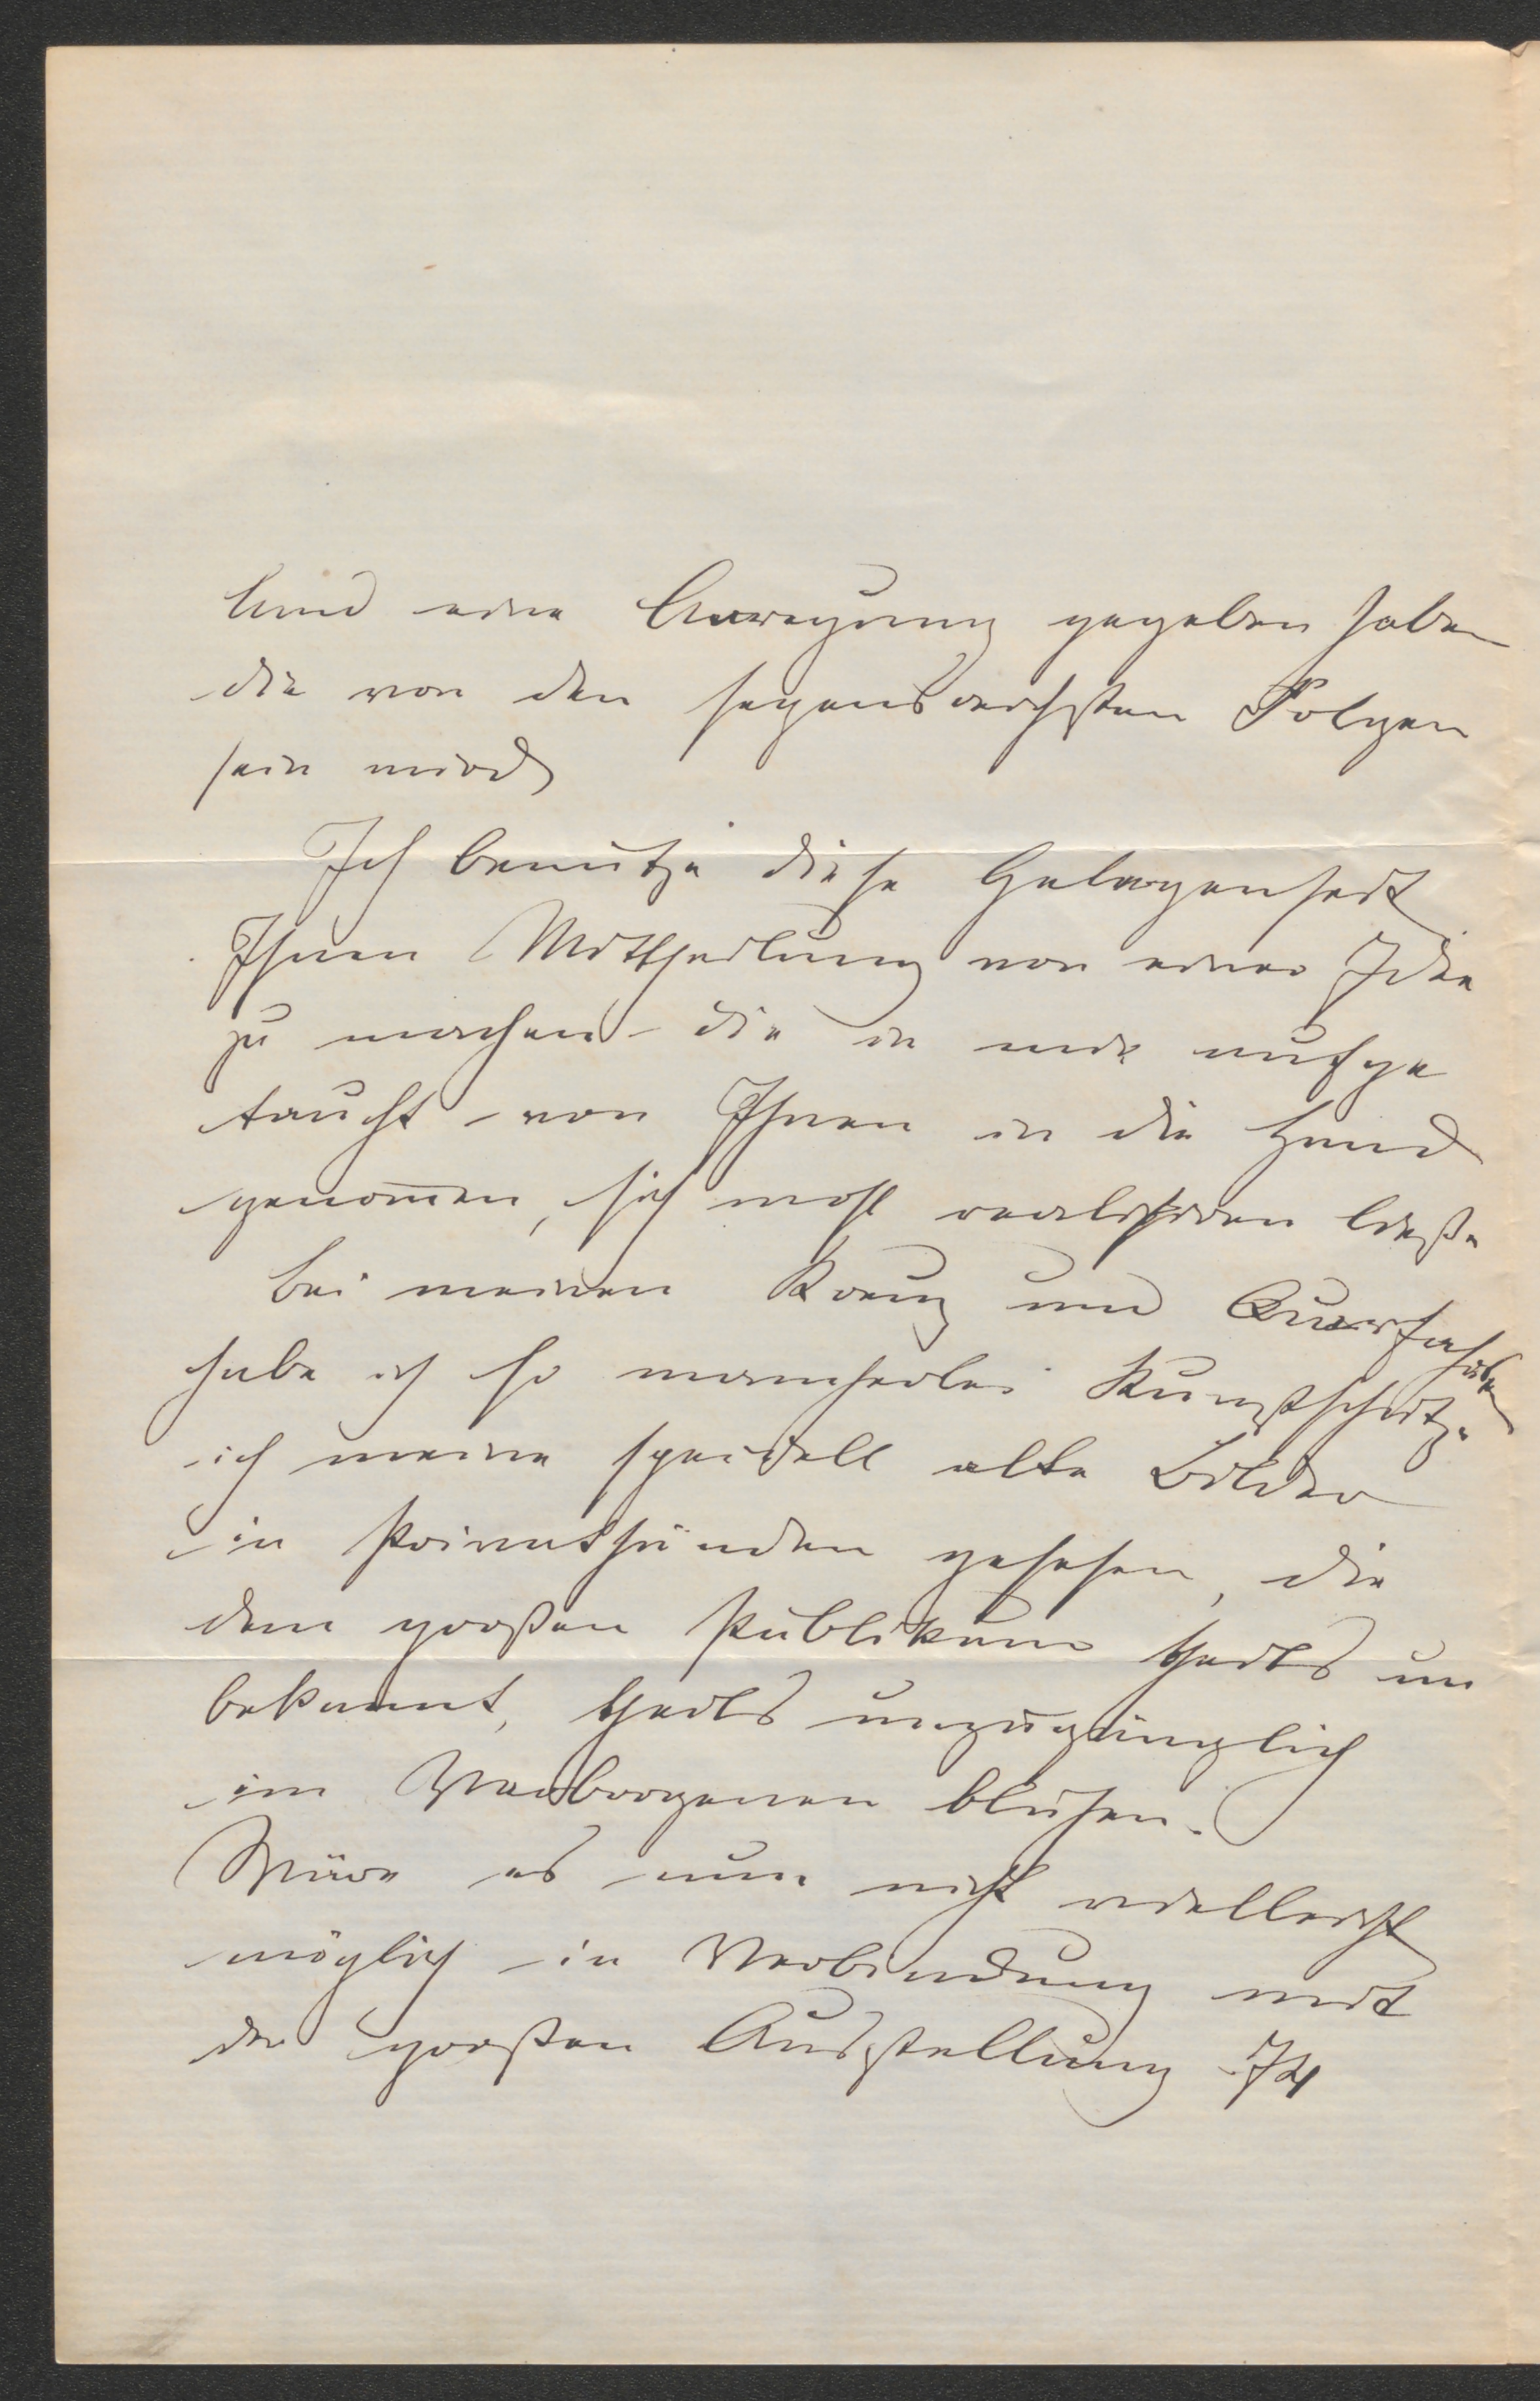 und eine Anregung gegeben haben
die von den segensreichsten Folgen
sein wird
Ich benutze diese Gelegenheit
Ihnen Mittheilung von einer Idee
zu machen – die in mir aufge
taucht – von Ihnen in die Hand
genommen, sich wohl realisiren ließe
Bei meinen Kreuz und Querfahrten
habe ich so mancherlei Kunstschätze
ich meine speciell alte Bilder
in Privathänden gesehen, die
dem großen Publikum theils un
bekannt, theils unzugänglich
im Verborgenen blühen.
Wäre es nun nicht vielleicht
möglich – in Verbindung mit
der großen Ausstellung 74